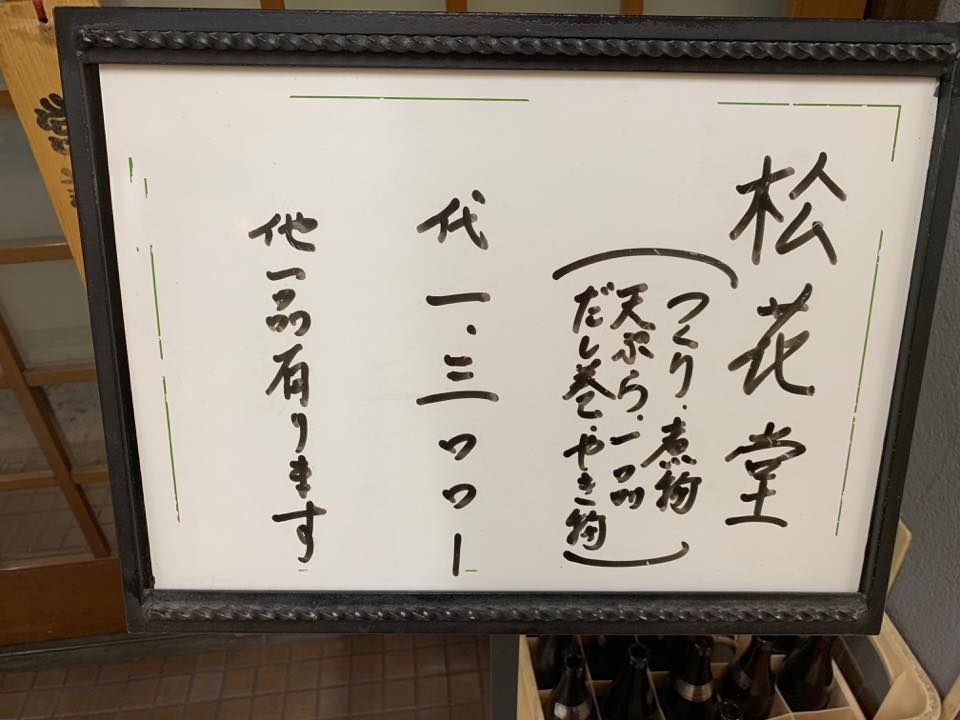 松花堂
(つくり・煮物
天ぷら・一品
だし巻・やき物)
代 一、三〇〇ー
他一品有ります